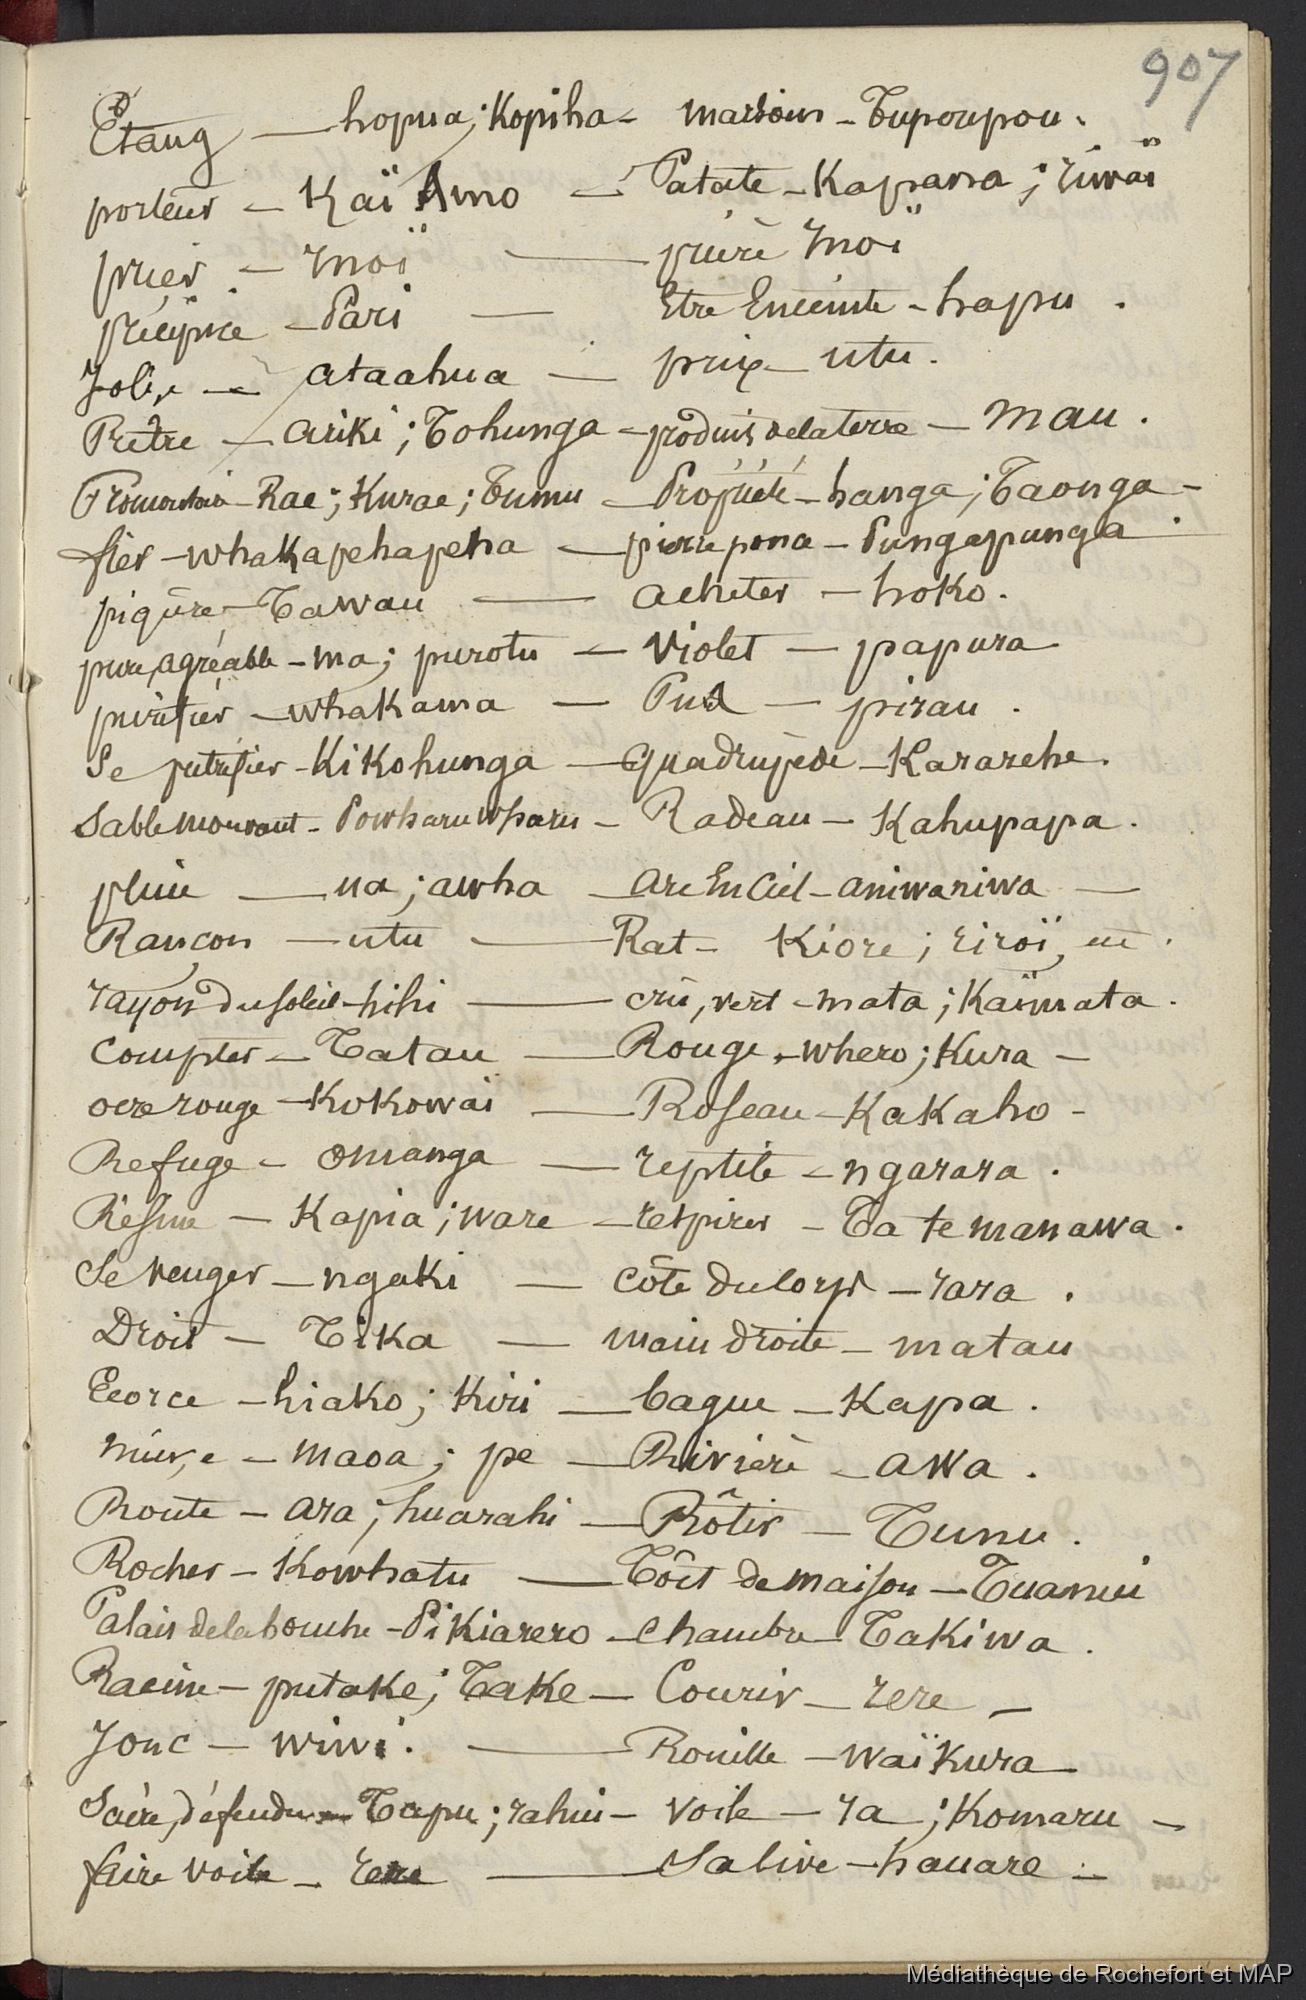 907
Étang — hopua; Kopiha - marsouin - Tupoupou.
porteur - Kaï Amo - Patate - Kapana; riwaï
prier - Inoï — prière Inoï
précipice - Pari — Etre Enceinte - hapu.
Joli,e - ataahua — prix - utu.
Prêtre - ariki; Tohunga - produis de la terre - Mau.
Promontoire - Rae; Kurae; Tumu - Propriété - hanga; Taonga -
fier - whakapehapeha - pierre ponce - Pungapunga.
piqûre - Tawau — acheter - hoko.
pure, agréable - ma; purotu - Violet - papura
purifier - whakama - Pus - pirau.
Se putréfier - Kikohunga - Quadrupède - Kararehe.
Sable mouvant - Powharuwharu - Radeau - Kahupapa.
pluie — ua; awha - arc En Ciel - aniwaniwa -
Rançon - utu — Rat - Kiore; riroï,
rayon du soleil - hihi — crû, vert - mata; Kaïmata.
Compter - Tatau — Rouge - whero; Kura -
ocre rouge - KoKowaï — Roseau - KaKaho -
Refuge - omanga — reptile - ngarara.
Résine - Kapia; ware - respirer - Ta te manawa.
Se venger - ngaki — Côte du Corps - rara.
Droit - Tika — main droite - matau
Ecorce - hiako; Kiri — bague - Kapa.
Mûr,e - maoa; pe - Rivière - awa.
Route - ara; huarahi - Rôtir - Tunu.
Rocher - Kowhatu — Toît de maison - Tuanui
Palais de la bouche - Pikiarero - Chambre - Takiwa.
Racine - putake; Take - Courir - rere -
Jonc - wiwi. — Rouille - waïkura
Sacré, défendu - Tapu; rahui - voile - ra; Komaru -
faire voile - rere — Salive - hauare -
Médiathèque de Rochefort et MAP